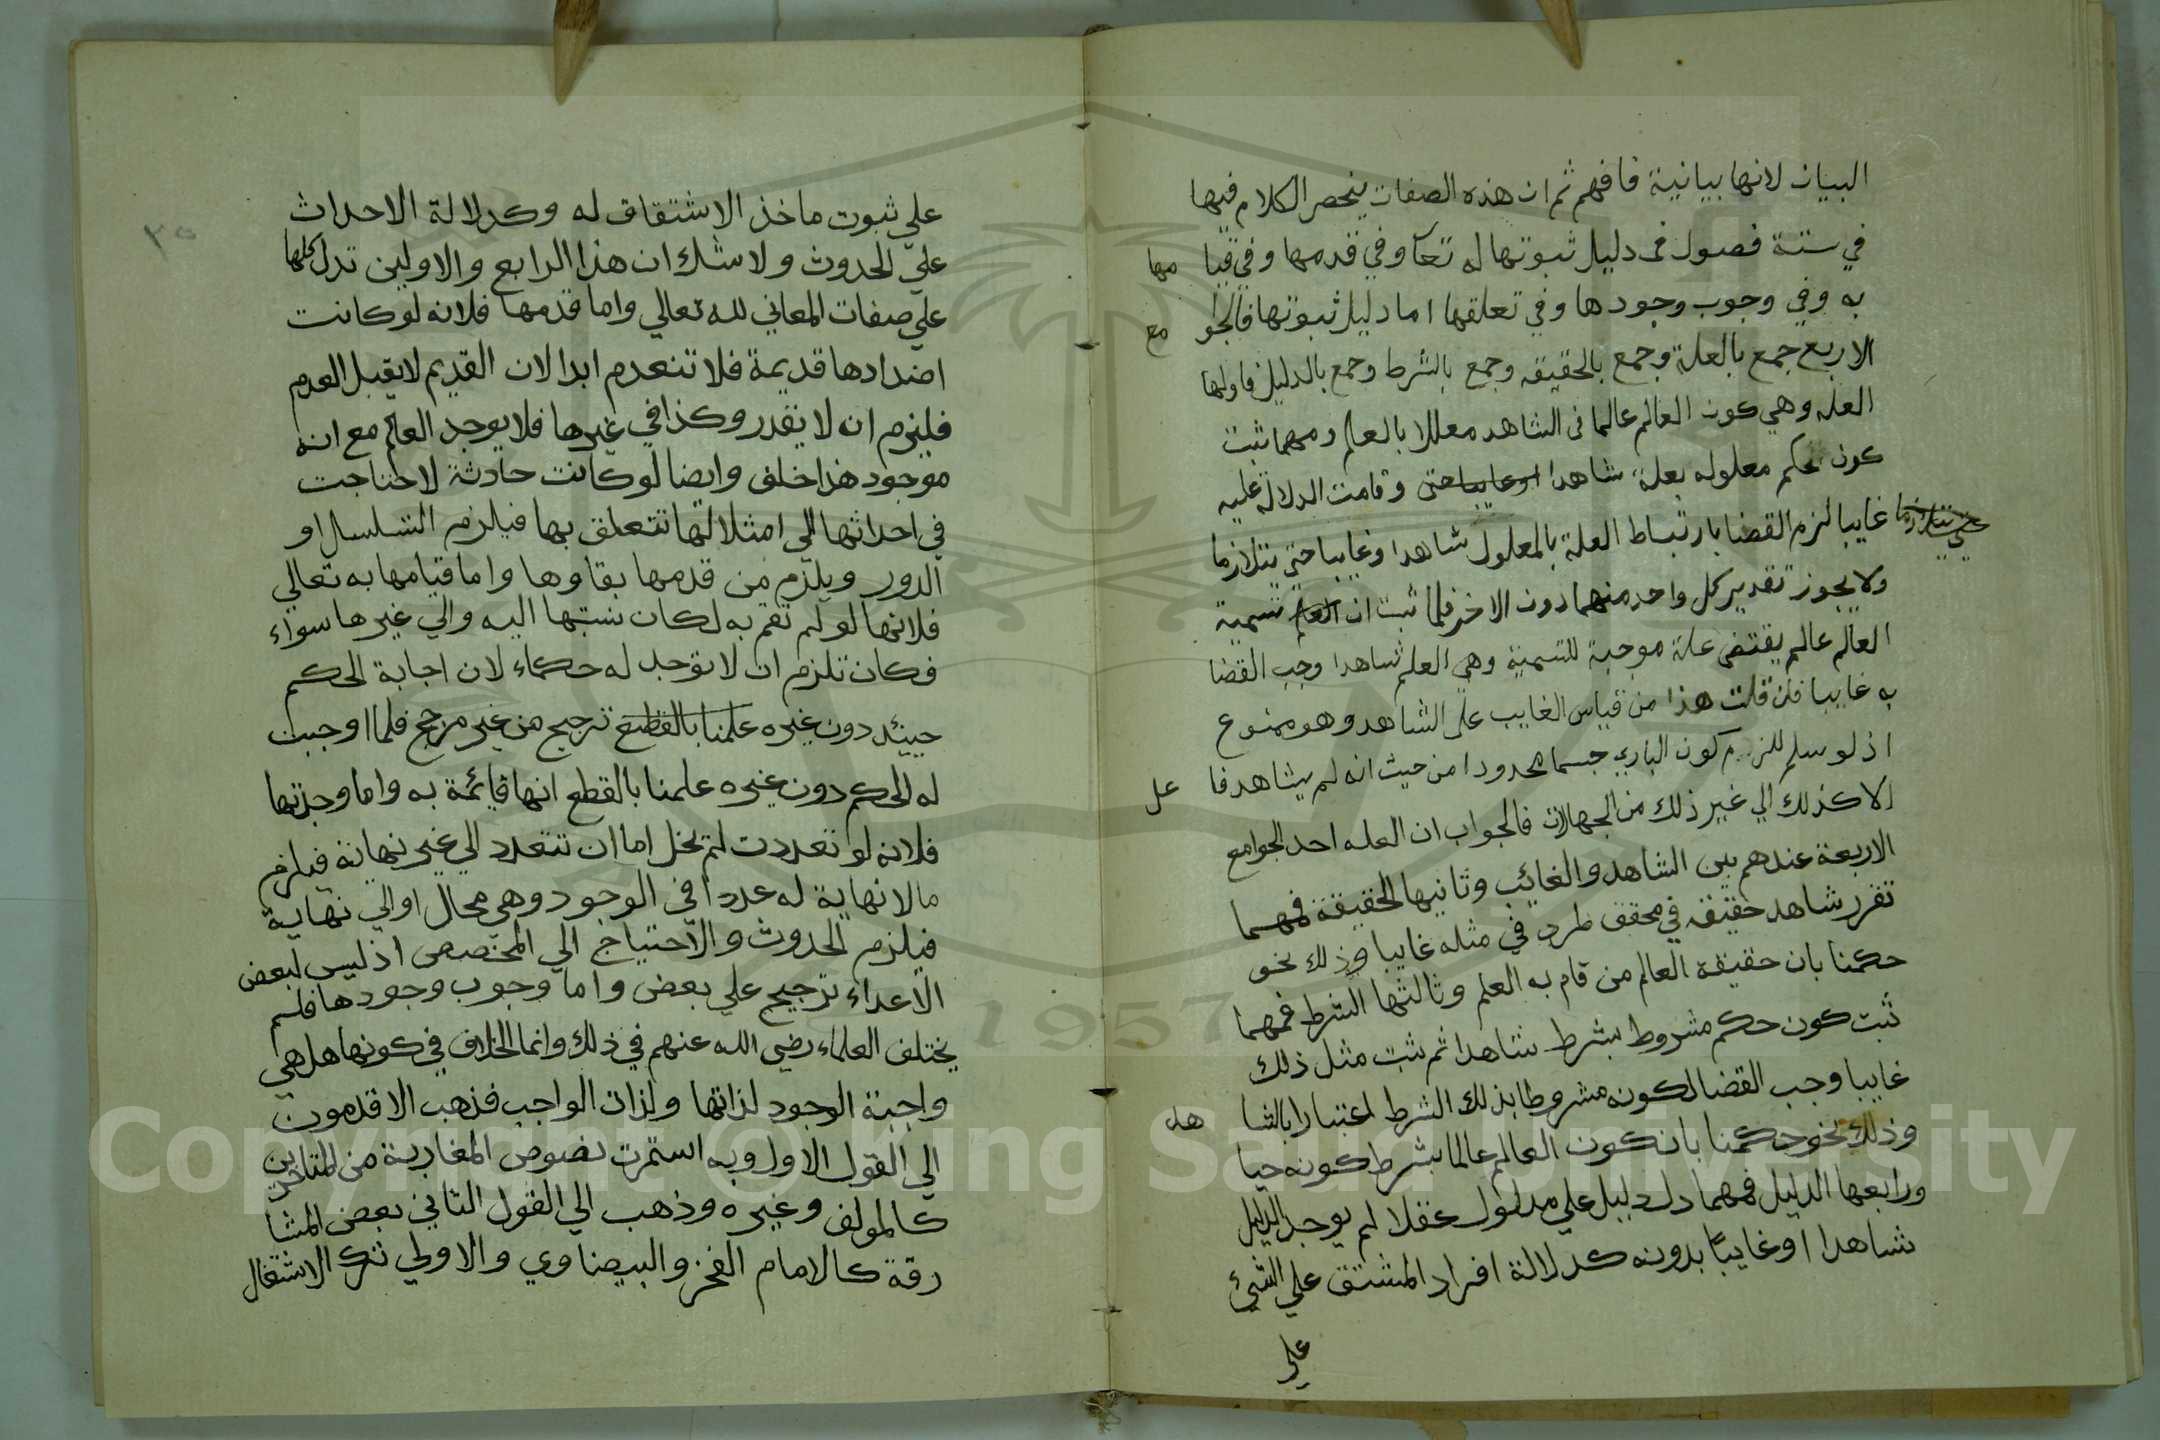 البيان لانها بيانية فافهم ثم ان هذه الصفات ينحصر الكلام فيها
في ستة فصول في دليل ثبوتها له تعا وفي قدمها وفي قيا مها
به وفي وجوب وجودها وفي تعلقها اما دليل ثبوتها فالجو مع
الاربع جمع بالعلة وجمع بالحقيقه وجمع بالشرط وجمع بالدليل فاولها
العله وهي كون العالم عالما في الشاهد معللا بالعلم ومهما ثبت
كون حكم معلوله بعلة شاهدا وقامت الدلالة عليه
غايبا لزم القضا بارتباط العلة بالمعلول شاهدا وغايبا حتي يتلازما
حتي يتلازما
ولا يجوز تقدير كل واحد منهما دون الاخر فلما ثبت ان تسمية
العالم عالم يقتضي علة موجبة للتسمية وهي العلم شاهدا وجب القضا
به غايبا فان قلت هذا من قياس الغايب علي الشاهد وهو ممنوع
اذ لو سلم للزم كون الباري جسما محدودا من حيث انه لم يشاهد فا عل
الا كذلك الي غير ذلك من الجهالات فالجواب ان العله احد الجوامع
الاربعة عندهم بين الشاهد والغائب وثانيها الحقيقة فمهما
تقرر شاهد حقيقه في محقق طرد في مثله غايبا وذلك نحو
حكمنا بان حقيقة العالم من قام به العلم وثالثها الشرط فمهما
ثبت كون حكم مشروط بشرط شاهدا ثم ثبت مثل ذلك
غايبا وجب القضا لكونه مشروطا بذلك الشرط اعتبارا بالشا هد
وذلك نحو حكمنا بان كون العالم عالما بشرط كونه حيا
ورابعها الدليل فمهما دل دليل علي مدلول عقلا لم يوجد الدليل
شاهدا او غايبا بدونه كدلالة افراد المشتق علي الشئ
علي
٣٥
علي ثبوت ماخذ الاشتقاق له وكدلالة الاحداث
علي الحدوث ولا شك ان هذا الرابع والاولين تدل كلها
علي صفات المعاني لله تعالي واما قدمها فلانه لو كانت
اضدادها قديمة فلا تنعدم ابدا لان القديم لا يقبل العدم
فليزم ان لا يقدر وكذا في غيرها فلا يوجد العالم مع انه
موجود هذا خلف وايضا لو كانت حادثة لاحتاجت
في احداثها الي امثلالتها تتعلق بها فيلزم التسلسل او
الدور ويلزم من قدمها بقاوها واما قيامها به تعالي
فلانها لو لم تقم به لكان نسبتها اليه والي غيرها سواء
فكان تلزم ان لا توجد له حكماء لان اجابة الحكم
حينئد دون غيره علمنا بالقطع ترجيح من غير مرجح فلما اوجبت
له الحكم دون غيره علمنا بالقطع انها قائمة به واما وحدتها
فلانه لو تعددت لم تخل اما ان تتعدد الي غير نهاية فيلزم
مالا نهاية له عددا في الوجود وهي محال او الي نهاية
فيلزم الحدوث والاحتياج الي المخصص اذ ليس لبعض
الاعداء ترجيح علي بعض واما وجوب وجودها فلم
يختلف العلماء رضي الله عنهم في ذلك وانما الخلاف في كونها هل هي
واجبة الوجود لذاتها ولذات الواجب فذهب الاقدمون
الي القول الاول وبه استمرت نصوص المغاربة من المتاخرين
كالمولف وغيره وذهب الي القول الثاني بعض المشا
رقة كالامام الفخر والبيضاوي والاولي ترك الاشتغال
Copyright © King Saud University
1957